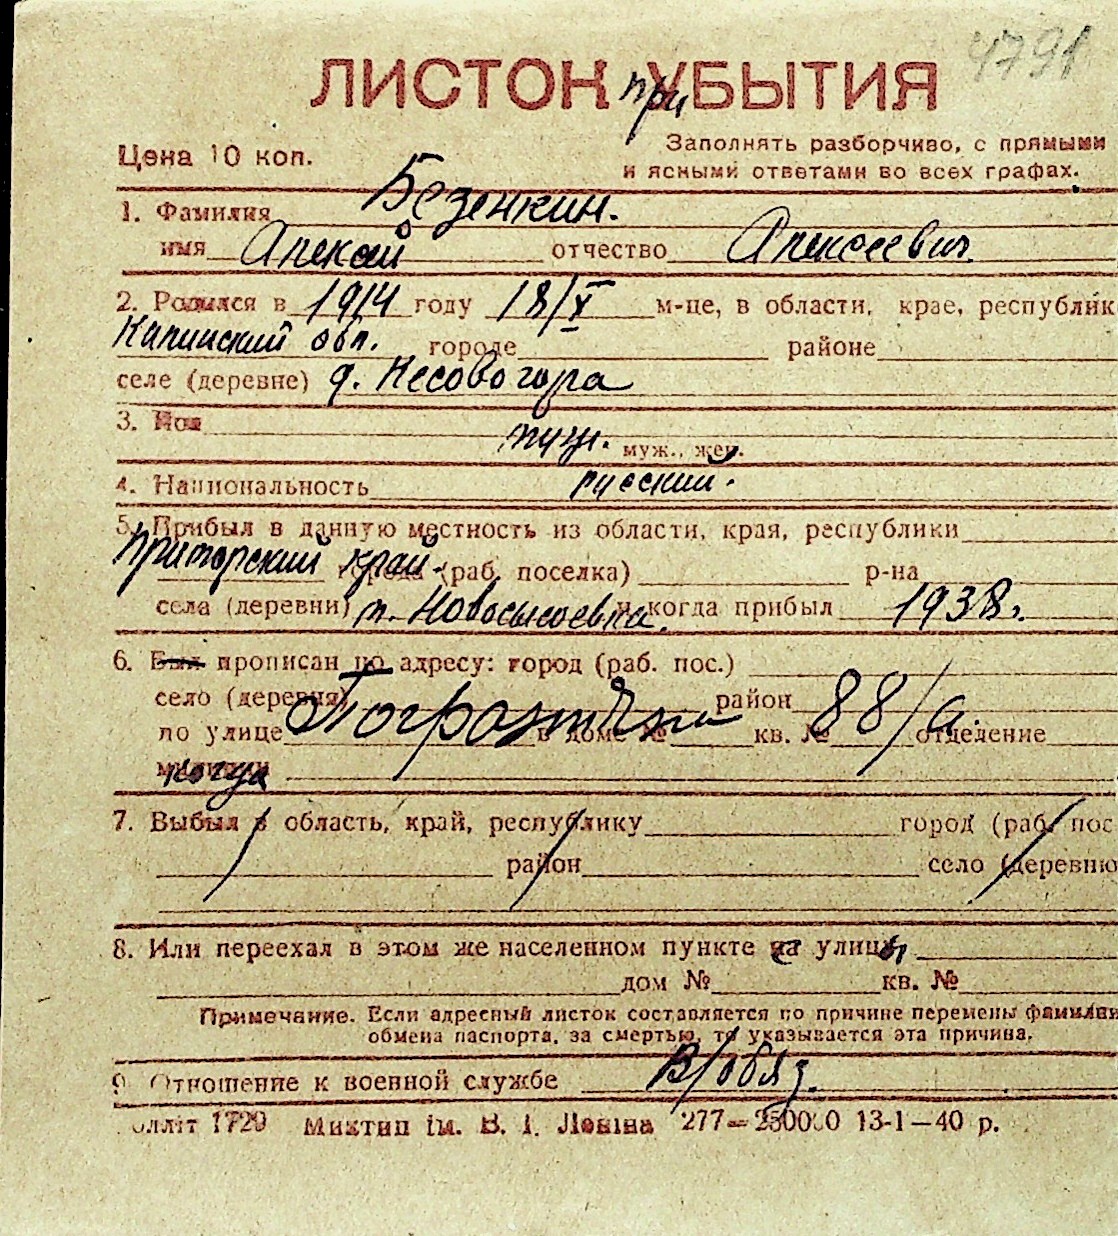 4791
ЛИСТОК при УБЫТИЯ
Цена 10 коп.
Заполнять разборчиво, с прямыми
и ясными ответами во всех графах.
1. Фамилия Безенкин.
имя Алексей отчество Алексеевич
2. Родился в 1914 году 18/X м-це, в области, крае, республик
обл. городе районе
селе (деревне) д. Лесовогора
3. Пол муж. муж., жен.
4. Национальность русский.
5. Прибыл в данную местность из области, края, республики
Приморский край. города (раб. поселка) р-на
села (деревни) и когда прибыл 1938.
6. Был прописан по адресу: город (раб. пос.)
село (деревня) район
по улице Погранична в доме № кв. № 88/а. отделение
милиции когда
7. Выбыл в область, край, республику город (раб. пос
район село (деревню
8. Или переехал в этом же населенном пункте на улицы
дом № кв. №
Примечание. Если адресный листок составляется по причине перемены фамилии
обмена паспорта, за смертью, то указывается эта причина.
9. Отношение к военной службе В/обяз.
оллит 1720 Миктип ім. В. І. Леніна 277—250000 13-1—40 р.